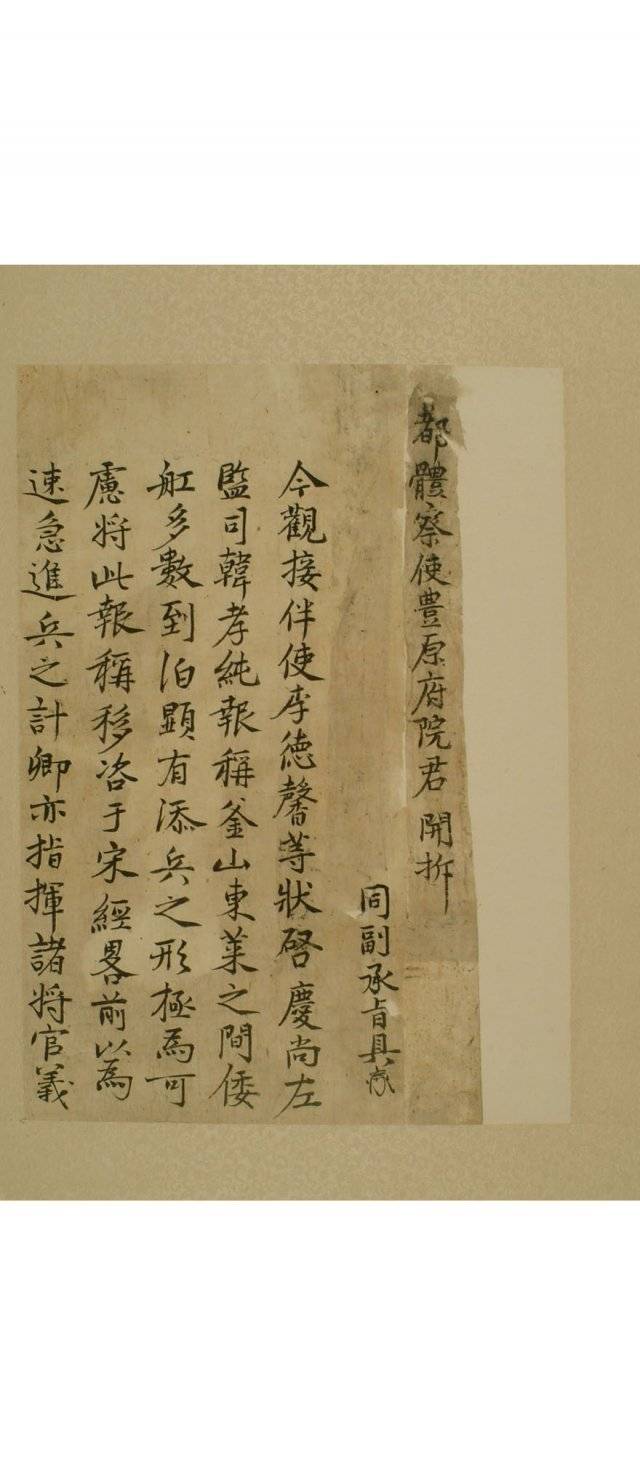 都體察使豊原府院君 開拆
同副承旨具
今觀接伴使李德馨等狀啓慶尚左
監司韓孝純報稱釜山東萊之間倭
舡多數到泊顯有添兵之形極爲可
慮將此報稱移咨于宋經畧前以爲
速急進兵之計卿亦指揮諸將官義